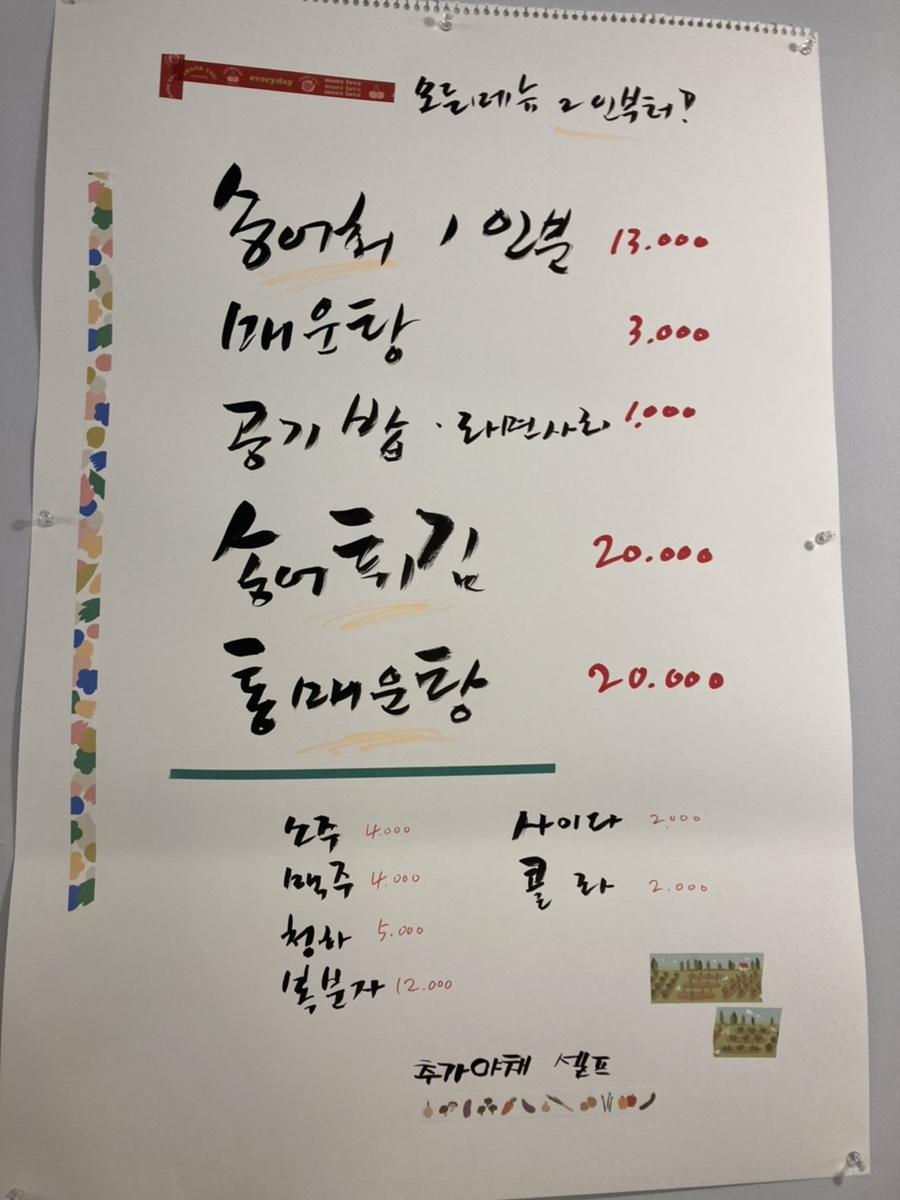 THANK YOU everyday more love
more love
more love
모든메뉴 2인부터!
송어회 1인분 13.000
매운탕 3.000
공기밥 · 라면사리 1,000
송어튀김 20.000
통매운탕 20.000
소주 4.000 사이다 2.000
맥주 4.000 콜라 2.000
청하 5.000
복분자 12.000
추가야채 셀프